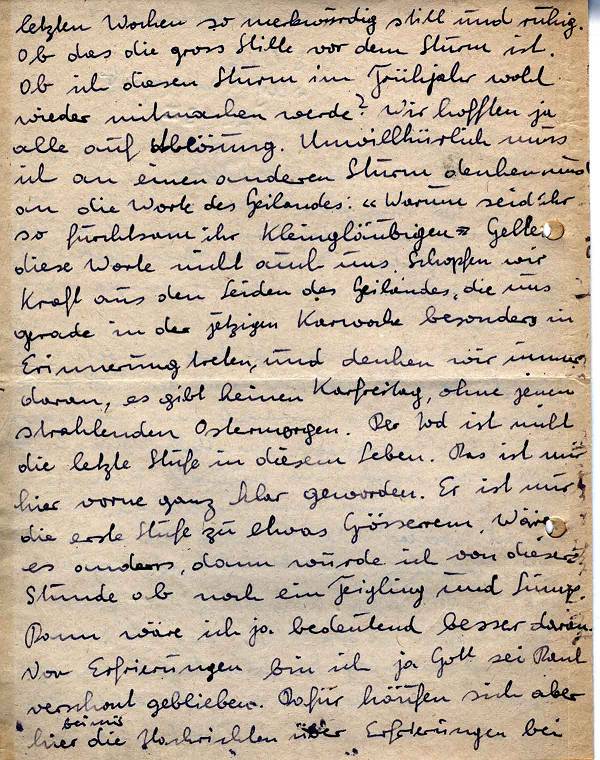 letzten Wochen so merkwürdig still und ruhig.
Ob das die gross Stille vor dem Sturm ist.
Ob ich diesen Sturm im Frühjahr wohl
wieder mitmachen werde? Wir hofften ja
alle auf Ablösung. Unwillkürlich muss
ich an einen anderen Sturm denken und
an die Worte des Heilandes: "Warum seid ihr
so furchtsam ihr Kleingläubigen" Gelten
diese Worte nicht auch uns Schöpfen wir
Kraft aus den Leiden des Heilandes, die uns
gerade in der jetzigen Karwoche besonders in
Erinnerung treten, und denken wir immer
daran, es gibt keinen Karfreitag, ohne jenen
strahlenden Ostermorgen. Der Tod ist nicht
die letzte Stufe in diesem Leben. Das ist mir
hier vorne ganz klar geworden. Er ist nur
die erste Stufe zu etwas Grösserem. Wäre
es anders, dann würde ich von dieser
Stunde ab noch ein Feigling und Lump.
Dann wäre ich ja bedeutend besser daran.
Vor Erfrierungen bin ich ja Gott sei Dank
verschont geblieben. Dafür häufen sich aber
bei mir
hier die Nachrichten über Erfrierungen bei